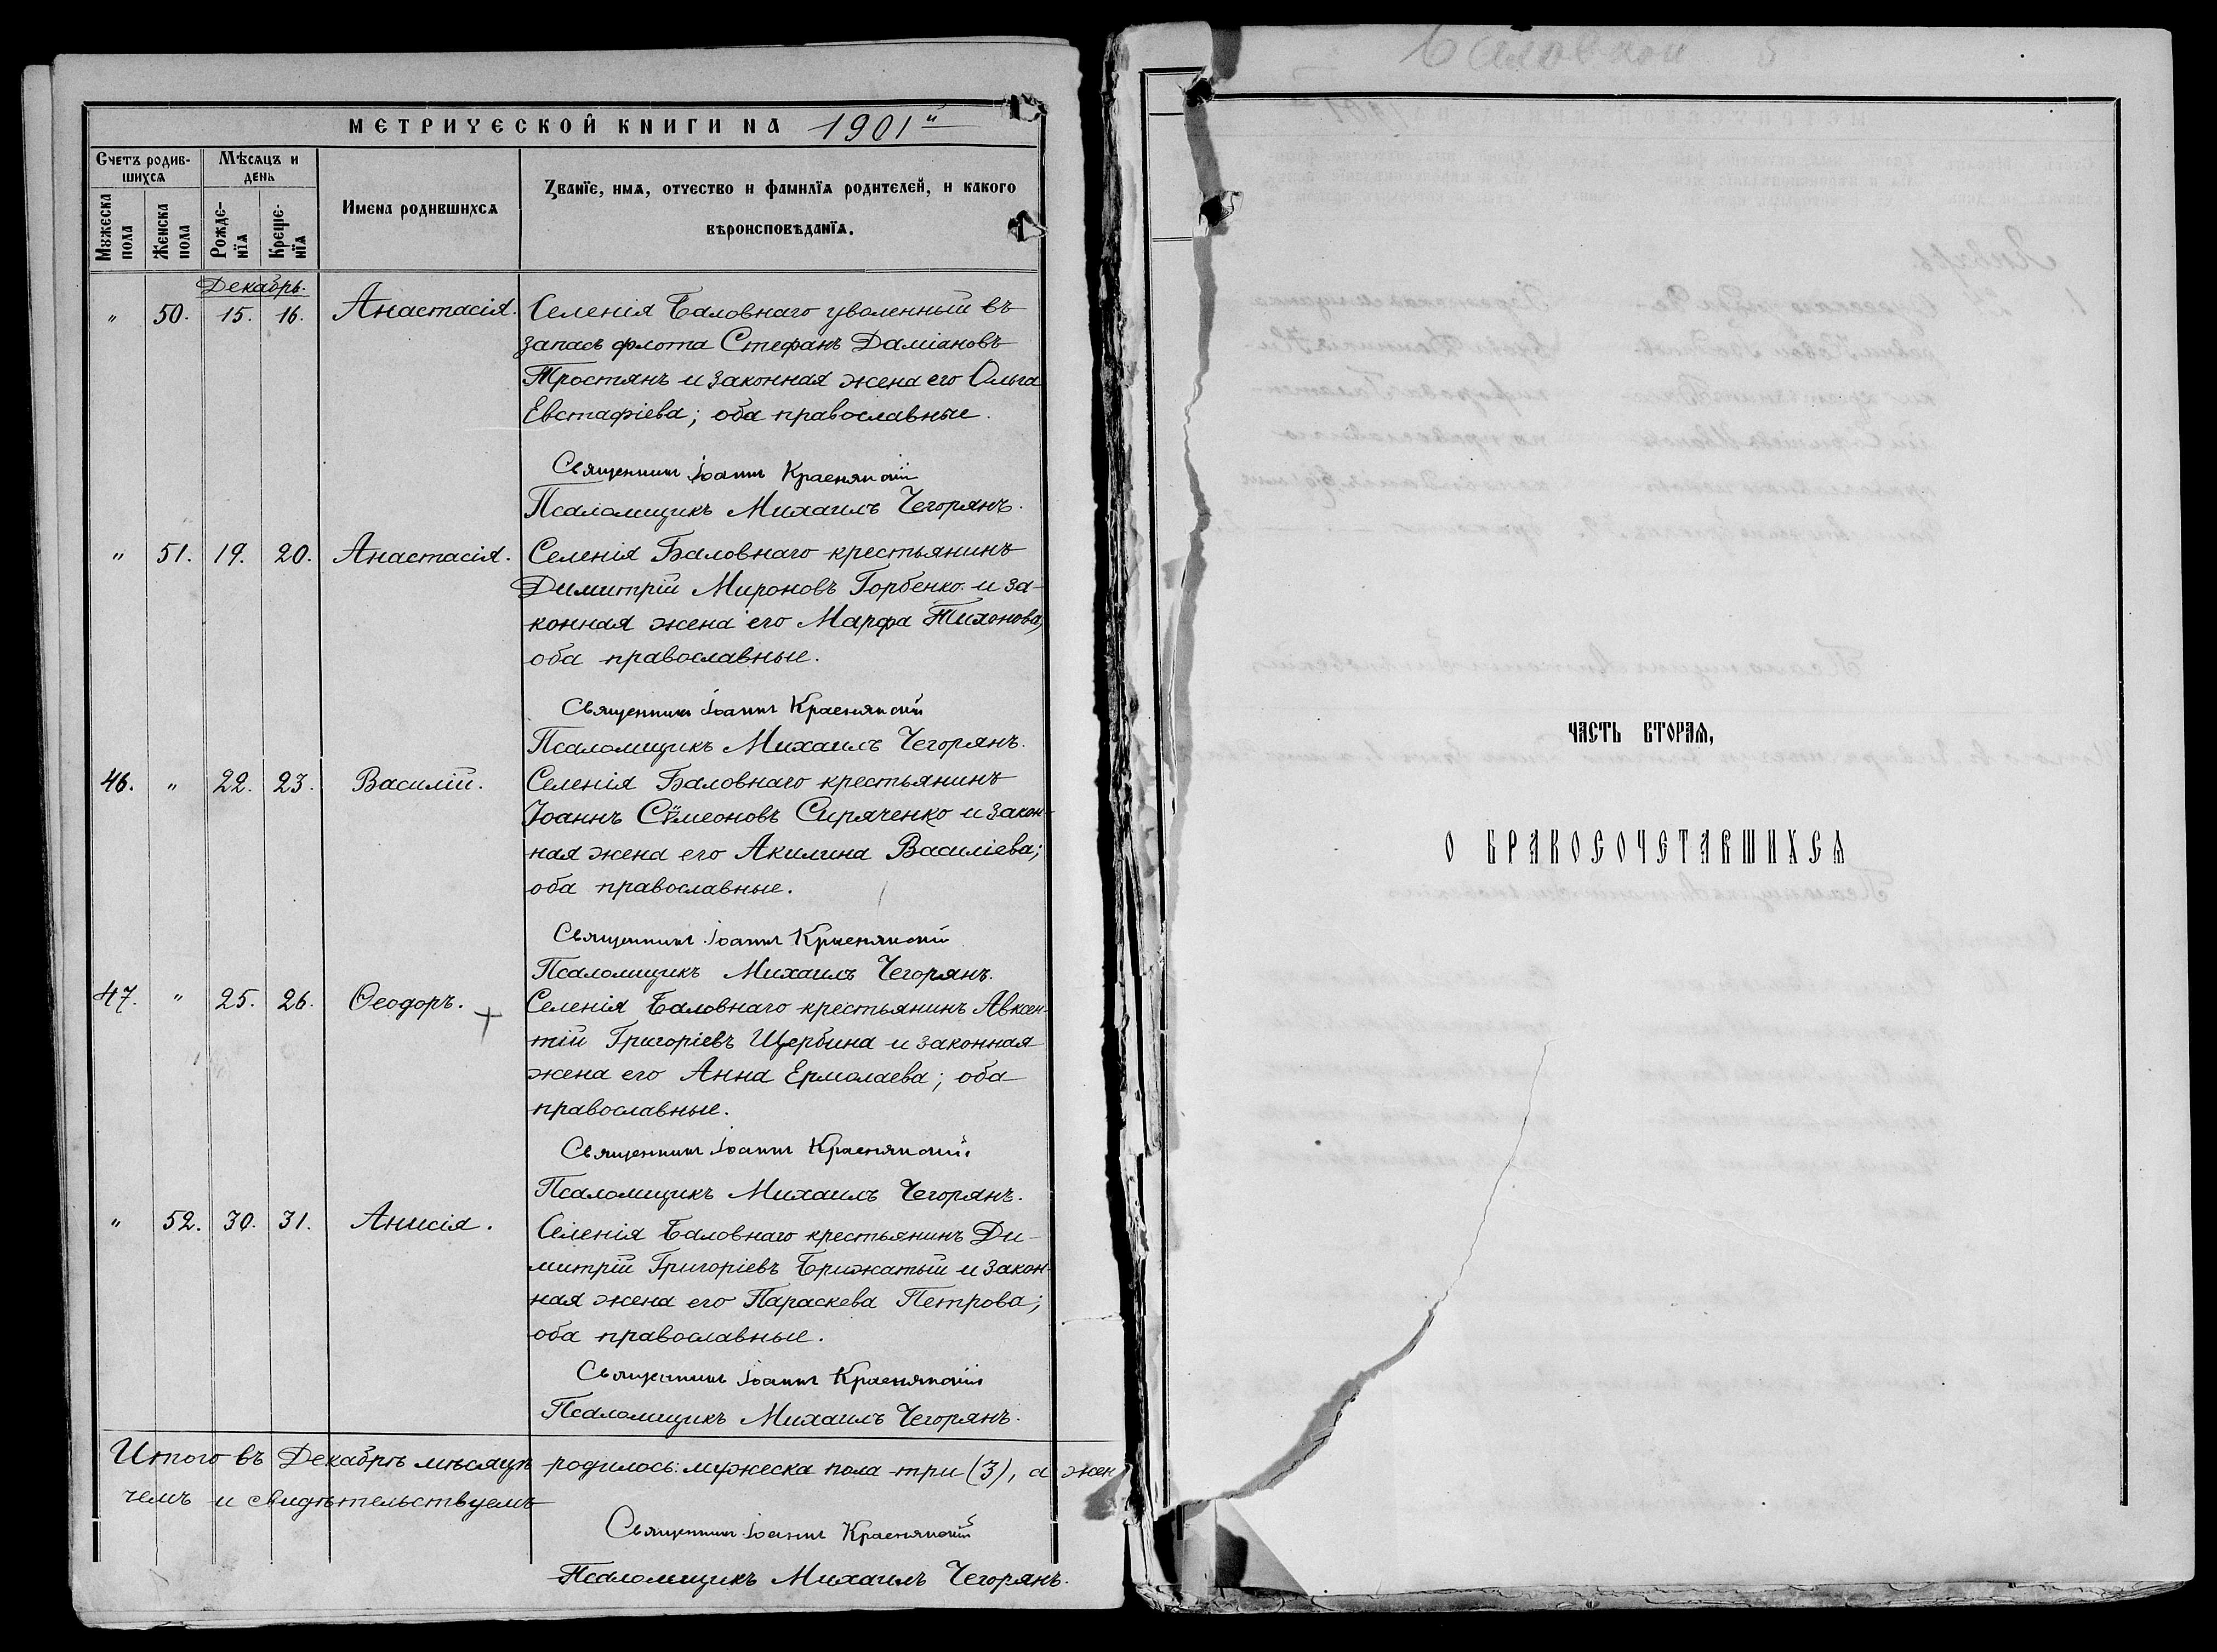 МЕТРИЧЕСКОЙ КНИГИ НА 1901й
Счетъ родив-
шихся
Мѣсяцъ и
день
Мужеска
пола
Женска
пола
Рожде-
нїя
Креще-
нїя
Имена родившихся
Званїе, имя, отчество и фамилїя родителей, и какого
вѣроисповѣданїя.
Декабрь.
" 50. 15. 16. Анастасія. Селенія Баловнаго уволенный въ
запасъ флота Стефанъ Даміановъ
Тростянъ и законная жена его Ольга
Евстафіева; оба православные.
Священникъ Іоаннъ Краснянскій
Псаломщикъ Михаилъ Чегорянъ.
" 51. 19. 20. Анастасія. Селенія Баловнаго крестьянинъ
Димитрій Мироновъ Горбенко и за-
конная жена его Марфа Тихонова,
оба православные.
Священникъ Іоаннъ Краснянскій
Псаломщикъ Михаилъ Чегорянъ.
46. " 22. 23. Василій. Селенія Баловнаго крестьянинъ
Іоаннъ Сѵмеоновъ Сиряченко и закон-
ная жена его Акилина Василіева;
оба православные.
Священникъ Іоаннъ Краснянскій
Псаломщикъ Михаилъ Чегорянъ.
47. " 25. 26. Ѳеодоръ. Селенія Баловнаго крестьянинъ Авксен-
тій Григоріевъ Щербина и законная
жена его Анна Ермолаева; оба
православные.
Священникъ Іоаннъ Краснянскій
Псаломщикъ Михаилъ Чегорянъ.
" 52. 30. 31. Анисія. Селенія Баловнаго крестьянинъ Ди-
митрій Григоріевъ Брижатый и закон-
ная жена его Параскева Петрова;
оба православные.
Священникъ Іоаннъ Краснянскій
Псаломщикъ Михаилъ Чегорянъ.
Итого въ Декабрѣ мѣсяцѣ родилось: мужеска пола три (3), а жен
чемъ и свидѣтельствуемъ
Священникъ Іоаннъ Краснянскій
Псаломщикъ Михаилъ Чегорянъ.
ЧАСТЬ ВТОРАЯ,
О БРАКОСОЧЕТАВШИХСЯ